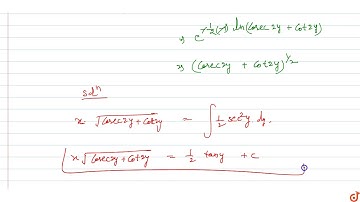 ⇒ e^{-\frac{1}{2}(-1) ln(Cosec2y + Cot2y)}
⇒ (Cosec2y + Cot2y)^{1/2}
Sol^n
x √Cosec2y+Cot2y = ∫ 1/2 sec²y dy.
x √Cosec2y+Cot2y = 1/2 tany + c